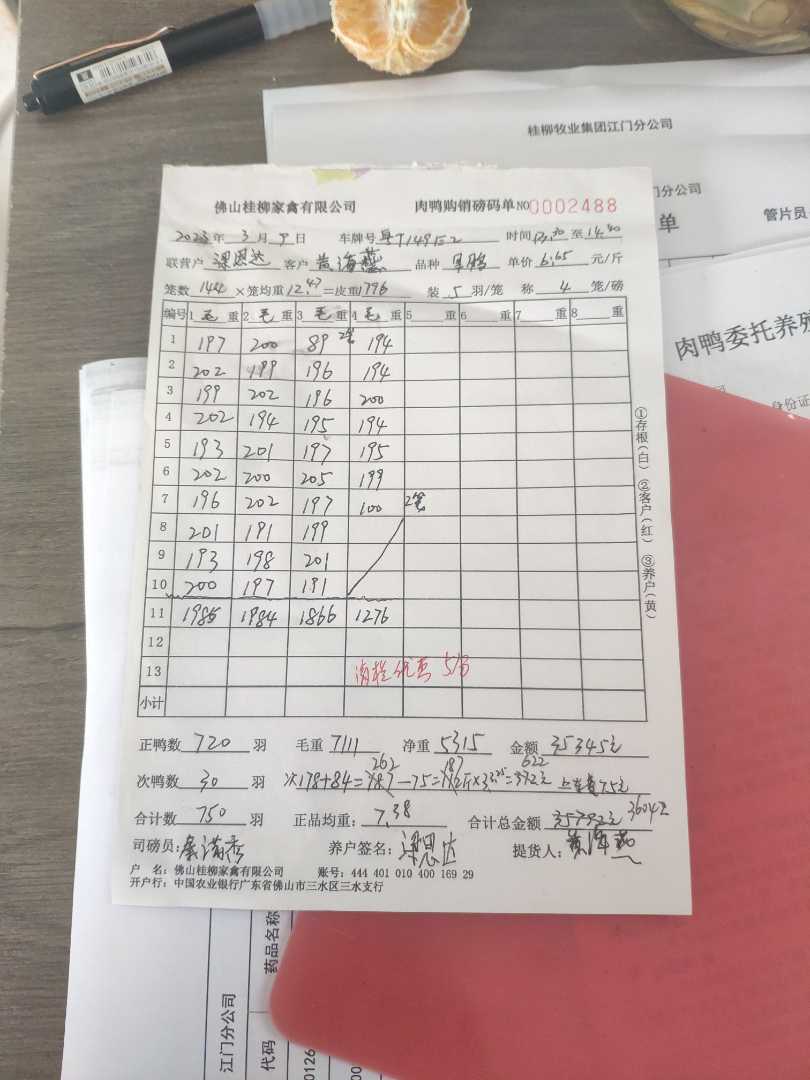 桂柳牧业集团江门分公司
门分公司
单
管片员
肉鸭委托养殖
身份证
佛山桂柳家禽有限公司 肉鸭购销磅码单 NO0002488
2023年3月9日 车牌号 粤T149E2 时间 至14:40
联营户 梁恩达 客户 黄海燕 品种 单价6.65元/斤
笼数144×笼均重12.47=皮重1796 装5羽/笼 称4笼/磅
编号 1毛重 2毛重 3毛重 4毛重 5重 6重 7重 8重
1 197 200 89 2笼 194
2 202 199 196 194
3 199 202 196 200
4 202 194 195 194
5 193 201 197 195
6 202 200 205 199
7 196 202 197 100 2笼
8 201 191 199
9 193 198 201
10 200 197 191
11 1985 1984 1866 1276
12
13 清栏优惠 5/13
小计
①存根(白) ②客户(红) ③养户(黄)
正鸭数720羽 毛重7111 净重5315 金额35345元
262 187 622
次鸭数30羽 次178+84= -75= 元 75元
合计数750羽 正品均重:7.38 合计总金额 35792元
司磅员: 养户签名:梁恩达 提货人:黄海燕
户 名:佛山桂柳家禽有限公司 账号:444 401 010 400 169 29
开户行:中国农业银行广东省佛山市三水区三水支行
江门分公司
药品名称
代码